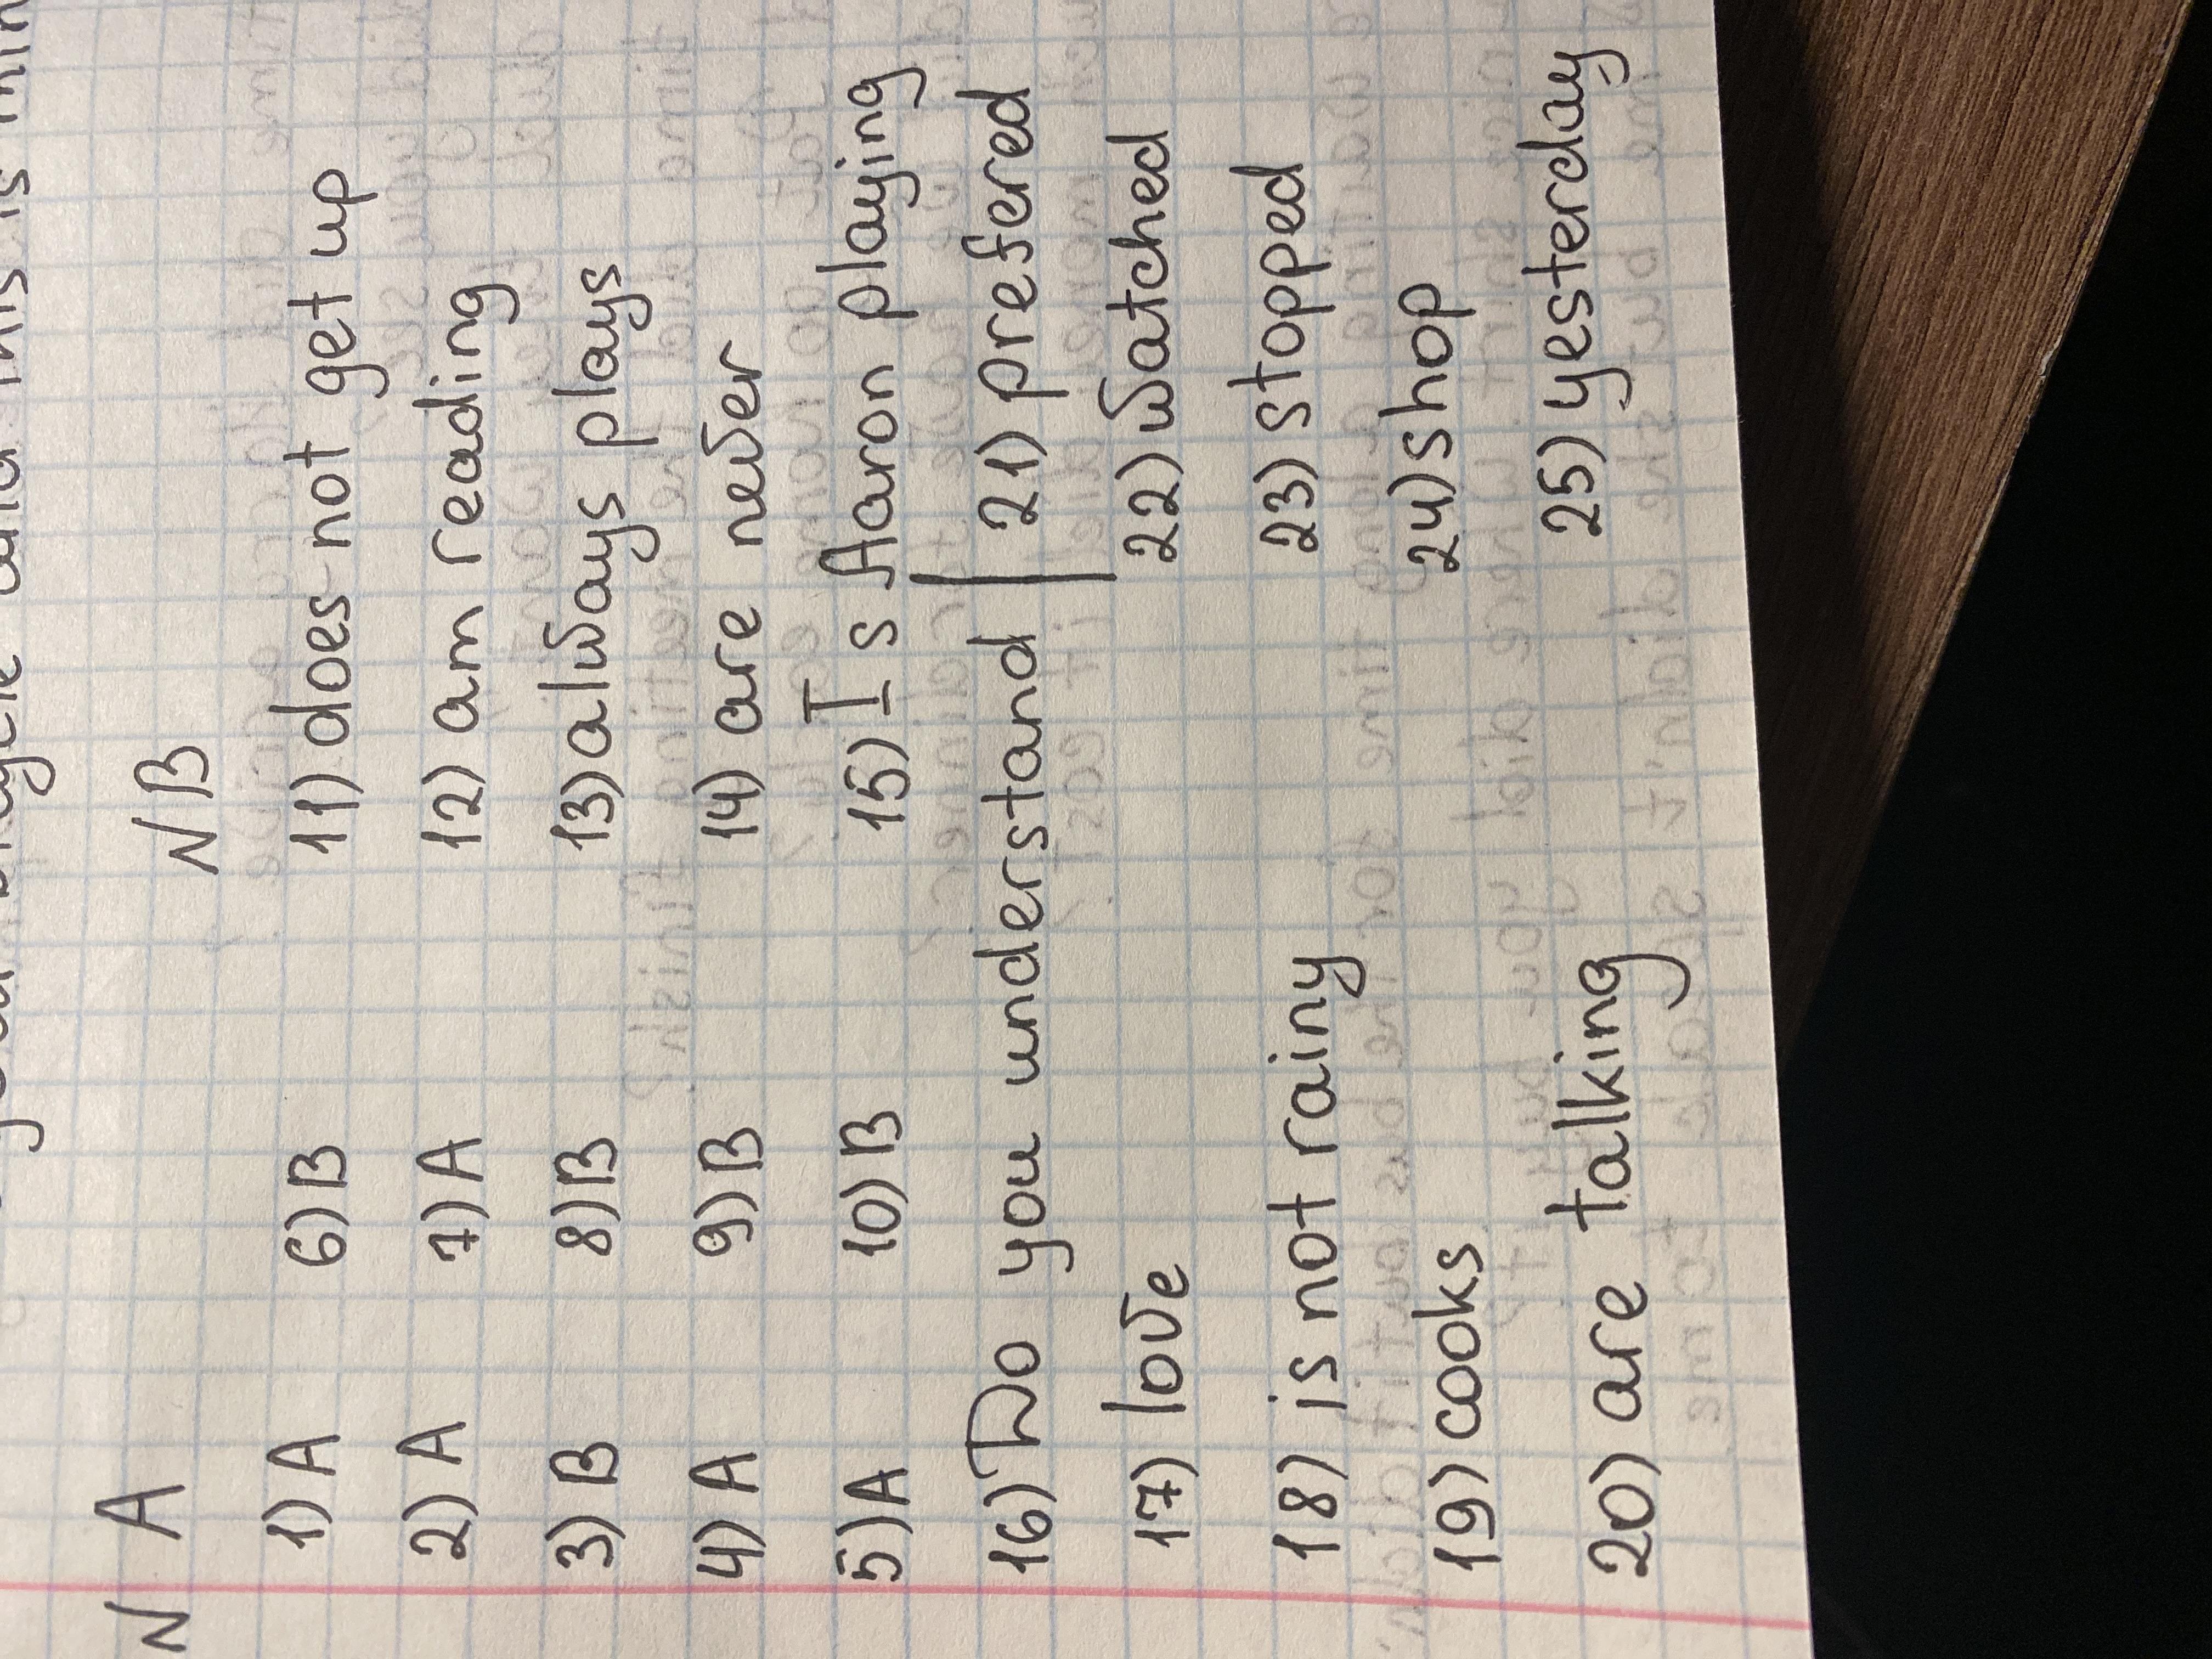 N A N B
1) A 6) B 11) does not get up
2) A 7) A 12) am reading
3) B 8) B 13) always plays
4) A 9) B 14) are never
5) A 10) B 15) Is Aaron playing
16) Do you understand 21) prefered
17) love 22) watched
18) is not rainy 23) stopped
19) cooks 24) shop
20) are talking 25) yesterday